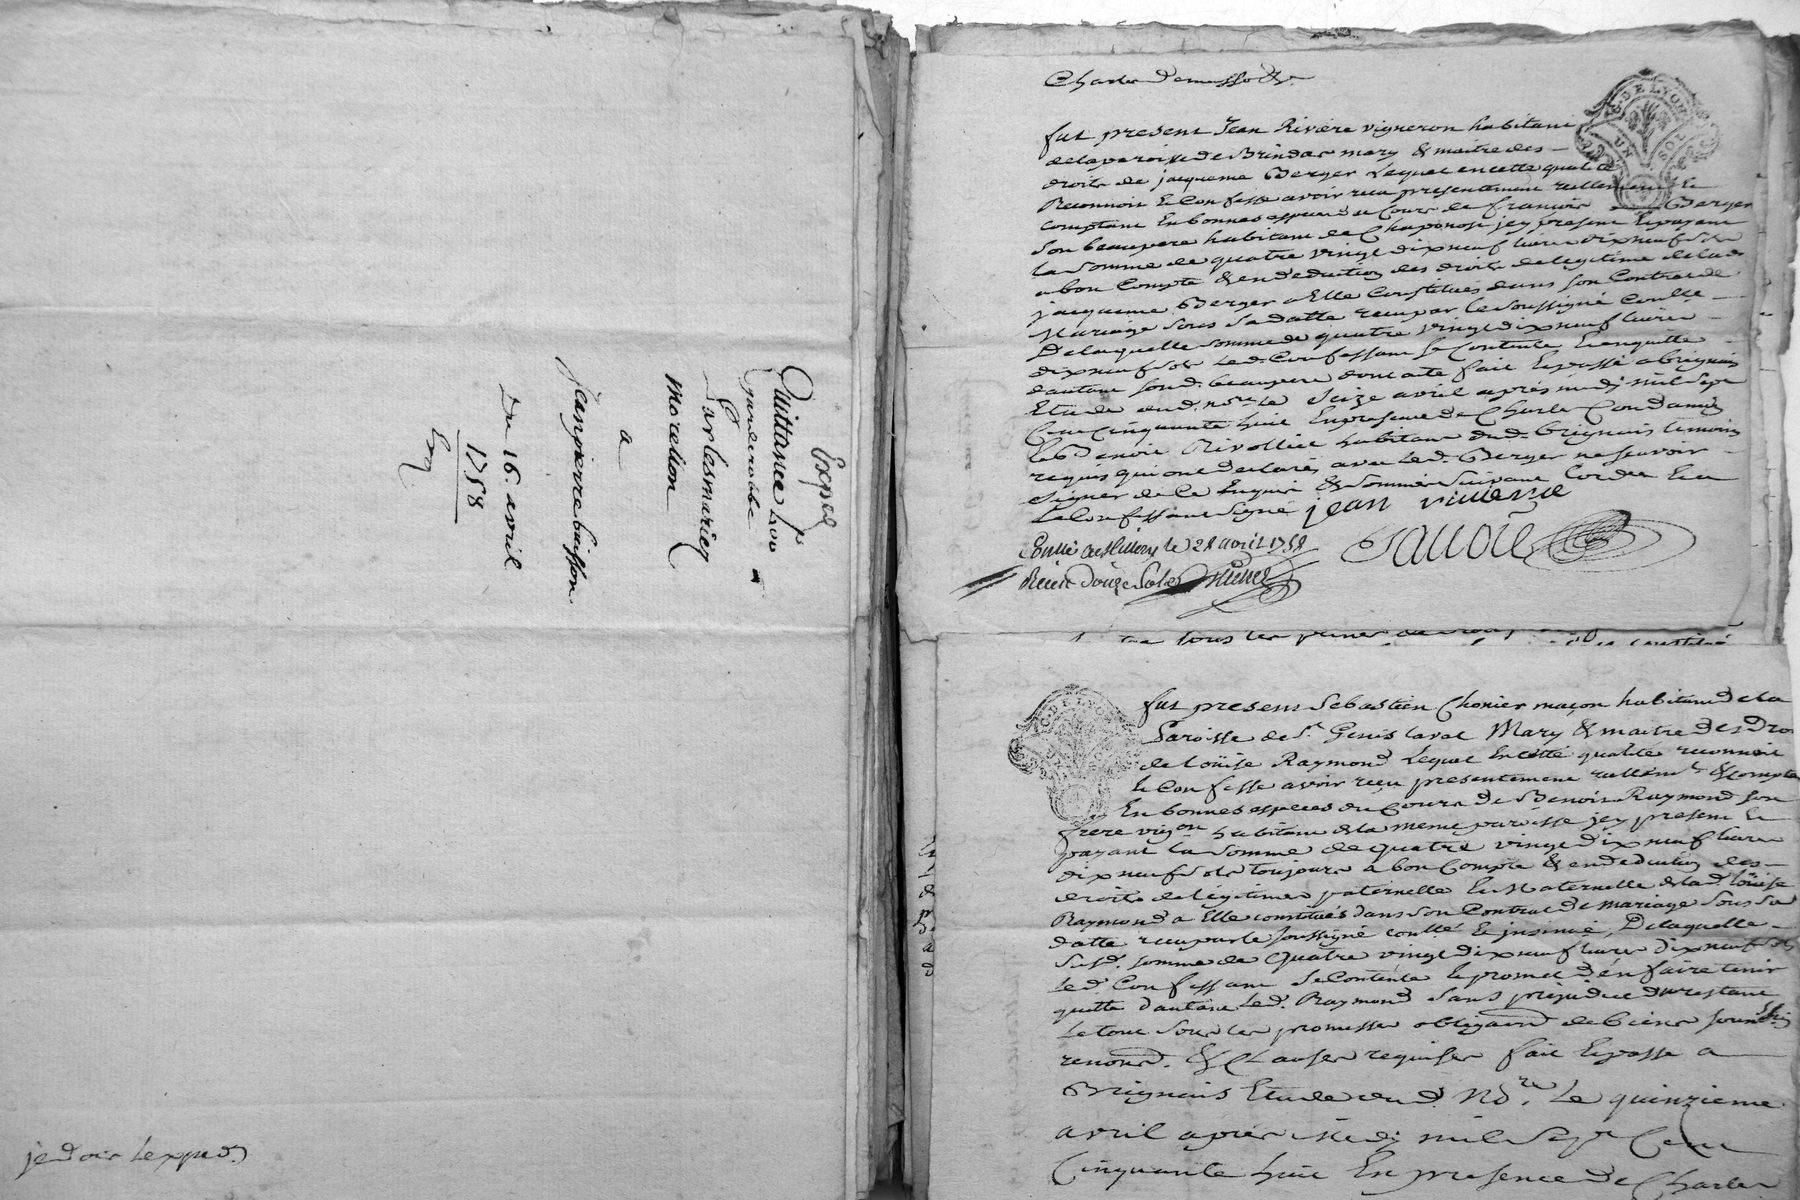 Exped
Quittance 400
garderobbe
Charlesmarie
Moredion
a
jeanpierre buisson
Du 16. avril
1758
je dois Lexped.
Charles
C. DE LYON
UN SOL
fut present Jean Riviere vigneron habitant
delaparoisse de Brindas mary & maitre des
droits de jacqueme Berger Lequel en cette qualité
Reconnoit & Confesse avoir recu presentement reellement &
comptant En bonnes especes du Cours de francois Berger
son beaupere habitant de Chaponost jcy present & payant
la somme de quatre vingt dix neuf livres dix neuf sols
a bon Compte & en deduction des droits de legitime de lad.
jacqueme Berger a Elle Constitués dans son Contrat de
Mariage sous sa datte recu par le soussigné Coullé
De laquelle somme de quatre vingt dix neuf livres
dix neuf sols Led. Confessant se Contente & en quitte
dautant sond. beaupere dont acte fait & passé a brignais
Etude dud. nore. le seize avril apres midi mil sept
Cent cinquante huit En presence de Charle Condamin
& Benoit Rivollier habitant dud. brignais temoins
requis qui ont declarés avec led. Berger ne scavoir
signer de ce Enquis & sommés suivant Lordce Et a
Le Confessant signé jean rivierre
Conllé a st illeny le 28 avril 1758
Recu douze sols
fut present Sebastien Chonier maçon habitant de la
Paroisse de St. Genis laval Mary & maitre des Dro
de Loüise Raymond Lequel En cette qualité reconnoit
& Confesse avoir reçu presentement reellemt. & compta
En bonnes especes du Cours de Benoit Raymond son
frere vigon habitant de la meme paroisse jcy present &
payant la somme de quatre vingt dix neuf livres
dix neuf sols toujours a bon Compte & en deduction des
droits de legitimes paternelle & Maternelle de lad. Loüise
Raymond a Elle constitués dans son Contrat de mariage sous sa
datte recu par le soussigné coullé & jnsinué, De laquelle
susd. somme de quatre vingt dix neuf livres dix neuf sols
led. Confessant se Contente & promet den faire tenir
quitte dautant Led. Raymond sans prejudice du restant
Le tout sous les promesses obligaons de biens soumissions
renons. & Clauses requises fait & passé a
Brignais Etude dud. No.re Le quinzieme
avril apres Midy mil Sept Cent
Cinquante huit En presence de Charles